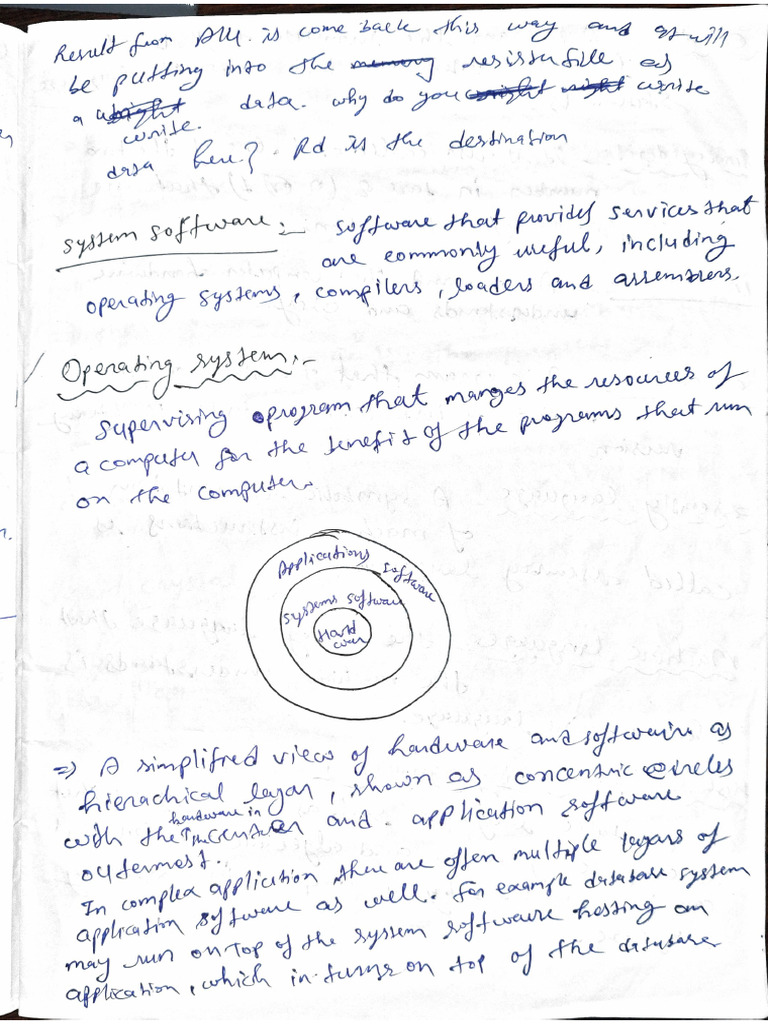 Result from ALU. is come back this way and it will
be putting into the memory resisterfile as
a wright data. why do you wright wright write
write.
data here? Rd is the destination
system software:- software that provides services that
are commonly useful, including
operating systems, compilers, loaders and assemblers.
Operating system:-
Supervising program that manges the resources of
a computer for the benefit of the programs that run
on the computer.
Applications software
Systems software
Hard
ware
=> A simplifred view of hardware and software as
hierachical layar, shown as concentric circles
hardware in
with the the center and application software
outermost.
In complex application there are often multiple layars of
application software as well. For example database system
may run on top of the system software hosting an
application, which in turns on top of the database